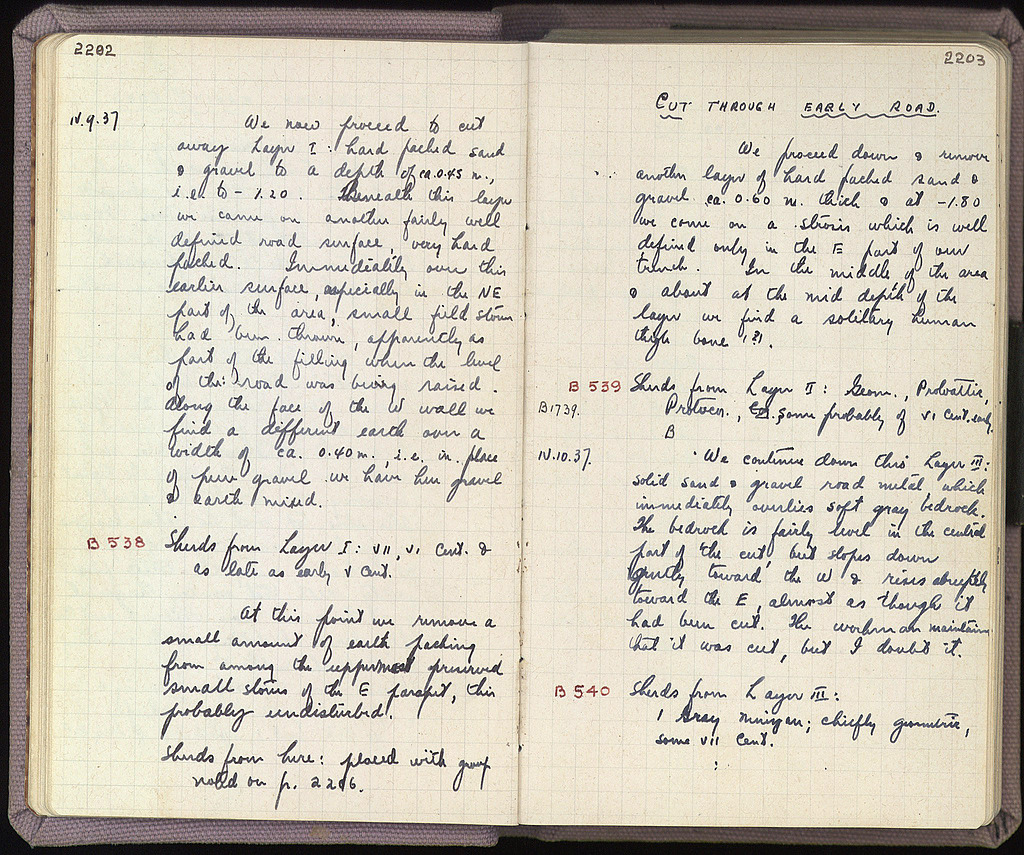 2202
IV.9.37 We now proceed to cut
away Layer I : hard packed sand
& gravel to a depth of ca. 0.45 m.,
i.e. to - 1.20. Beneath this layer
we came on another fairly well
defined road surface, very hard
packed. Immediately over this
earlier surface, especially in the NE
part of the area, small field stones
had been thrown, apparently as
part of the filling when the level
of the road was being raised.
Along the face of the W wall we
find a different earth over a
width of ca. 0.40 m., i.e. in place
of pure gravel we have here gravel
& earth mixed.
B 538 Sherds from Layer I : VII, VI cent. &
as late as early V cent.
At this point we remove a
small amount of earth packing
from among the uppermost preserved
small stones of the E parapet, this
probably undisturbed.
Sherds from here : placed with group
noted on p. 2206.
2203
CUT THROUGH EARLY ROAD.
We proceed down & remove
another layer of hard packed sand &
gravel ca. 0.60 m. thick & at -1.80
we come on a strosis which is well
defined only in the E part of our
trench. In the middle of the area
& about at the mid depth of the
layer we find a solitary human
thigh bone (?).
B 539 Sherds from Layer II : Geom., Protoattic,
B1739. Protocor., some probably of VI cent. early.
B
IV.10.37. We continue down this Layer III :
solid sand & gravel road metal which
immediately overlies soft gray bedrock.
The bedrock is fairly level in the central
part of the cut, but slopes down
gently toward the W & rises abruptly
toward the E, almost as though it
had been cut. The workman maintains
that it was cut, but I doubt it.
B 540 Sherds from Layer III :
1 Gray Minyan; chiefly geometric,
some VII cent.